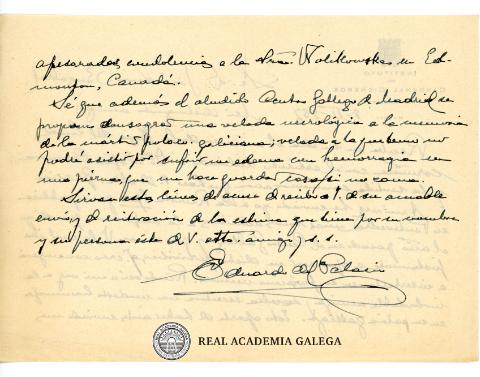 apesarados, condolencias a la Sra. Wolikowska en Ed-
monton, Canadá.
Sé que además el aludido Centro Gallego de Madrid se
propone consagrar una velada necrológica a la memoria
de la mártir polaco-galiciana; velada a la que temo no
podré asistir por sufrir un edema con hemorragia en
una pierna, que me hace guardar casa, si no cama.
Sirvan estas líneas de acuse de recibo de su amable
envío, y de reiteración de la estima que tiene por su nombre
y su persona éste de V. atto. amigo, y s. s.
Eduardo del Palacio
REAL ACADEMIA GALEGA